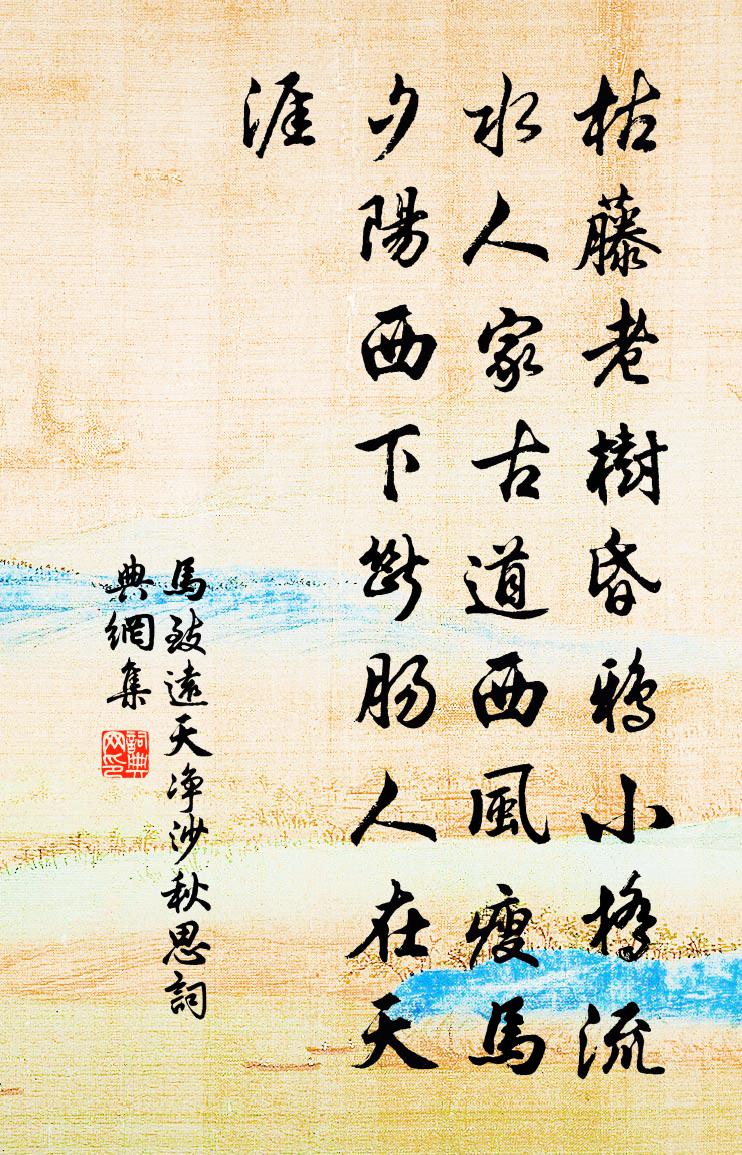 枯藤老樹昏鴉小橋流
水人家古道西風瘦馬
夕陽西下斷腸人在天
涯
馬致遠天净沙秋思詞
典網集
詞典
网印